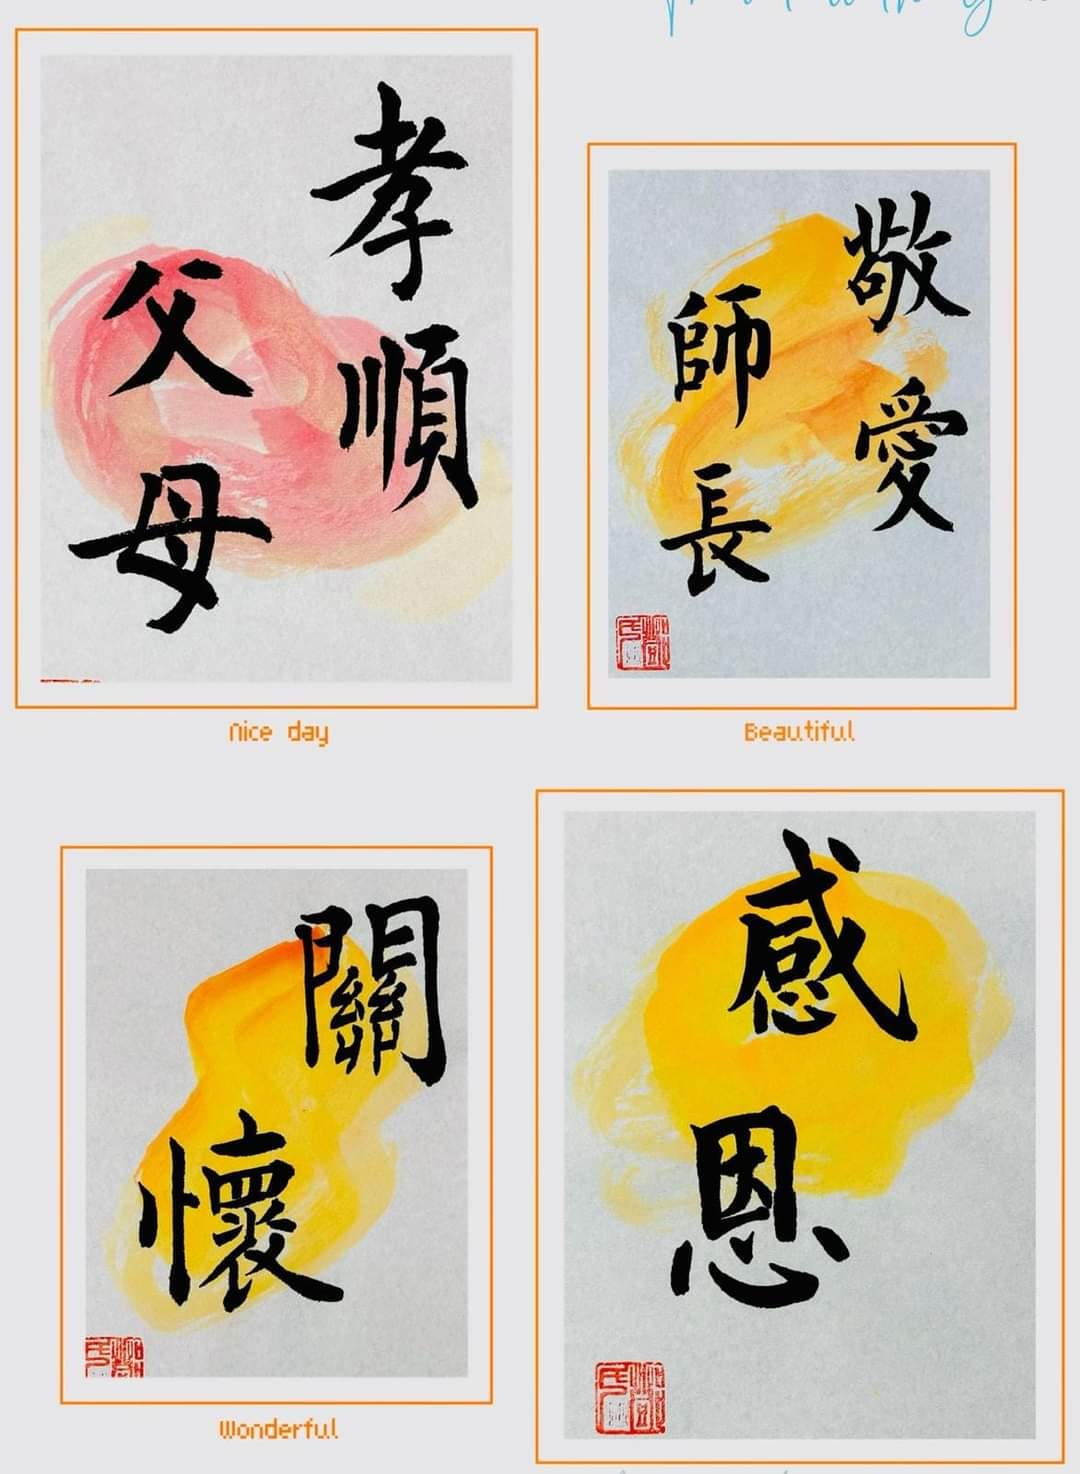 孝順
父母
Nice day
敬愛
師長
Beautiful
關
懷
Wonderful
感
恩